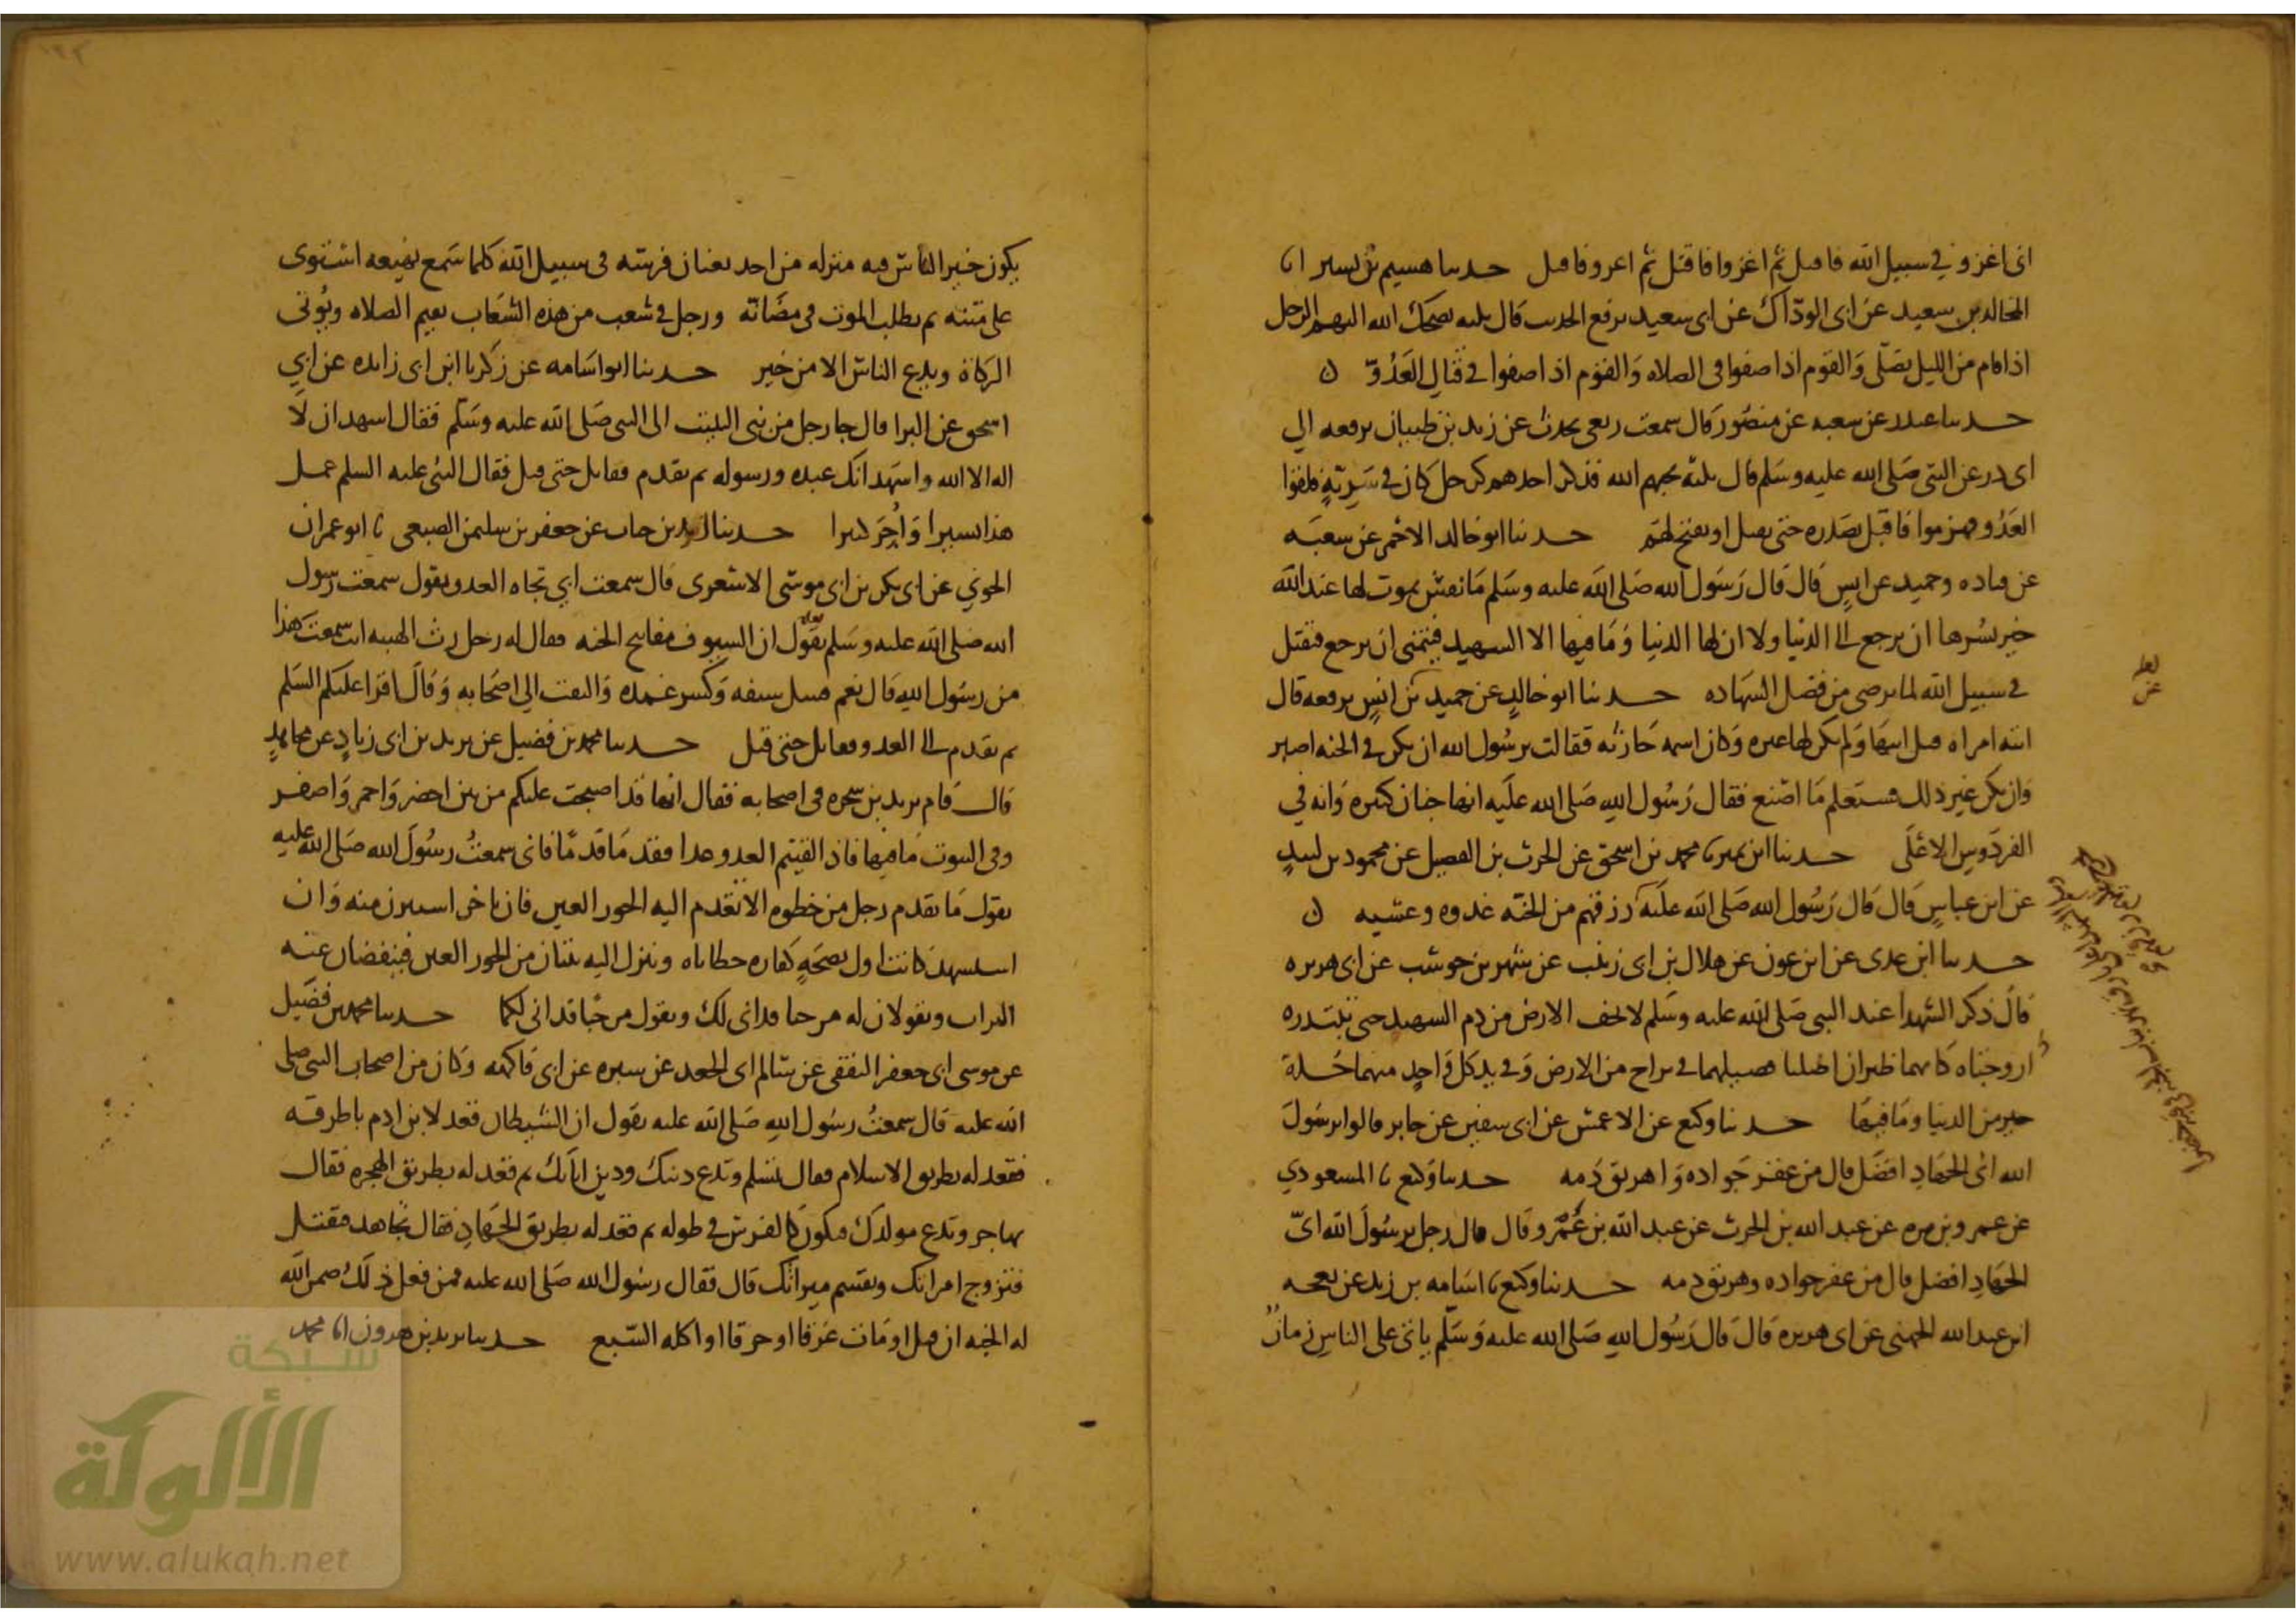 انى اغزو في سبيل الله فاقتل ثم اغزوا فاقتل ثم اغزو فاقتل حدثنا هشيم بن بشير انا
المجالد بن سعيد عن ابى الودّاك عن ابى سعيد يرفع الحديث قال ثلثه يضحك الله اليهم الرجل
اذا قام من الليل يصلى والقوم اذا صفوا فى الصلاه والقوم اذا صفوا في قتال العدوّ
حدثنا غندر عن شعبه عن منصور قال سمعت ربعى يحدث عن زيد بن ظبيان يرفعه الى
ابى ذر عن النبى صلى الله عليه وسلم قال ثلثة يحبهم الله فذكر احدهم رجل كان في سرية فلقوا
العدو فهزموا فاقبل بصدره حتى يقتل او يفتح لهم حدثنا ابو خالد الاحمر عن شعبه
عن قتاده وحميد عن انس قال قال رسول الله صلى الله عليه وسلم ما نفس يموت لها عند الله
خير يسرها ان يرجع الى الدنيا ولا ان لها الدنيا وما فيها الا الشهيد فيتمنى ان يرجع فيقتل
في سبيل الله لما يرى من فضل الشهاده حدثنا ابو خالد عن حميد عن انس يرفعه قال
اتته امراه قتل ابنها ولم يكن لها غيره وكان اسمه حارثه فقالت يرسول الله ان يكن في الجنه اصبر
وان يكن غير ذلك فستعلم ما اصنع فقال رسول الله صلى الله عليه انها جنان كثيره وانه في
الفردوس الاعلى حدثنا ابن نمير نا محمد بن اسحق عن الحرث بن الفضيل عن محمود بن لبيد
عن ابن عباس قال قال رسول الله صلى الله عليه رزقهم من الجنه غدوه وعشيه
حدثنا ابن عدى عن ابن عون عن هلال بن ابى زينب عن شهر بن حوشب عن ابى هريره
قال ذكر الشهدا عند النبى صلى الله عليه وسلم لا تجف الارض من دم الشهيد حتى تبتدره
زوجتاه كانهما ظيران اضلتا فصيلهما في براح من الارض وفي يد كل واحد منهما حلة
خير من الدنيا وما فيها حدثنا وكيع عن الاعمش عن ابى سفين عن جابر قالوا يرسول
الله اى الجهاد افضل قال من عقر جواده واهريق دمه حدثنا وكيع نا المسعودي
عن عمرو بن مره عن عبد الله بن الحرث عن عبد الله بن عمرو قال قال رجل يرسول الله اىّ
الجهاد افضل قال من عقر جواده وهريق دمه حدثنا وكيع نا اسامه بن زيد عن بعجه
ابن عبد الله الجهنى عن ابى هريره قال قال رسول الله صلى الله عليه وسلم ياتى على الناس زمان
يكون خير الناس فيه منزله من اخذ بعنان فرسه فى سبيل الله كلما سمع بهيعه استوى
على متنه ثم يطلب الموت فى مضانه ورجل في شعب من هذه الشعاب يقيم الصلاه ويُوتى
الزكاة ويدع الناس الا من خير حدثنا ابو اسامه عن زكريا ابن ابى زايده عن ابي
اسحق عن البرا قال جا رجل من بنى النبيت الى النبى صلى الله عليه وسلم فقال اشهد ان لا
اله الا الله واشهد انك عبده ورسوله ثم تقدم فقاتل حتى قتل فقال النبى عليه السلم عمل
هذا يسيرا وأجر كثيرا حدثنا زيد بن حباب عن جعفر بن سليمن الضبعى نا ابو عمران
الجوني عن ابى بكر بن ابى موسى الاشعرى قال سمعت ابي تجاه العدو يقول سمعت رسول
الله صلى الله عليه وسلم يقول ان السيوف مفاتيح الجنه فقال له رجل رث الهييه انت سمعت هذا
من رسول الله قال نعم فسل سيفه وكسر غمده والتفت الى اصحابه وقال اقرا عليكم السلم
ثم تقدم الى العدو فقاتل حتى قتل حدثنا محمد بن فضيل عن يزيد بن ابى زياد عن مجاهد
قال قام يزيد بن شجره فى اصحابه فقال انها قد اصبحت عليكم من بين اخضر واحمر واصفر
وفى البيوت ما فيها فاذا لقيتم العدو غدا فقدما قدما فانى سمعت رسول الله صلى الله عليه
يقول ما تقدم رجل من خطوه الا تقدم اليه الحور العين فان تاخر استترن منه وان
استشهد كانت اول نضحه كفاره خطاياه وينزل اليه ثنتان من الحور العين فينفضان عنه
التراب ويقولان له مرحبا قد انى لك ويقول مرحبا قد انى لكما حدثنا محمد بن فضيل
عن موسى ابى جعفر الثقفى عن سالم ابى الجعد عن سبره عن ابى فاكهه وكان من اصحاب النبى صلى
الله عليه قال سمعت رسول الله صلى الله عليه يقول ان الشيطان قعد لابن ادم باطرقه
فقعد له بطريق الاسلام فقال تسلم وتدع دينك ودين ابايك ثم قعد له بطريق الهجره فقال
تهاجر وتدع مولدك فتكون كالفرس في طوله ثم قعد له بطريق الجهاد فقال تجاهد فتقتل
فتزوج امراتك ويقسم ميراثك قال فقال رسول الله صلى الله عليه فمن فعل ذلك ضمن الله
له الجنه ان قتل او مات غرقا او حرقا او اكله السبع حدثنا يزيد بن هرون انا محمد
شبكة
الألوكة
www.alukah.net